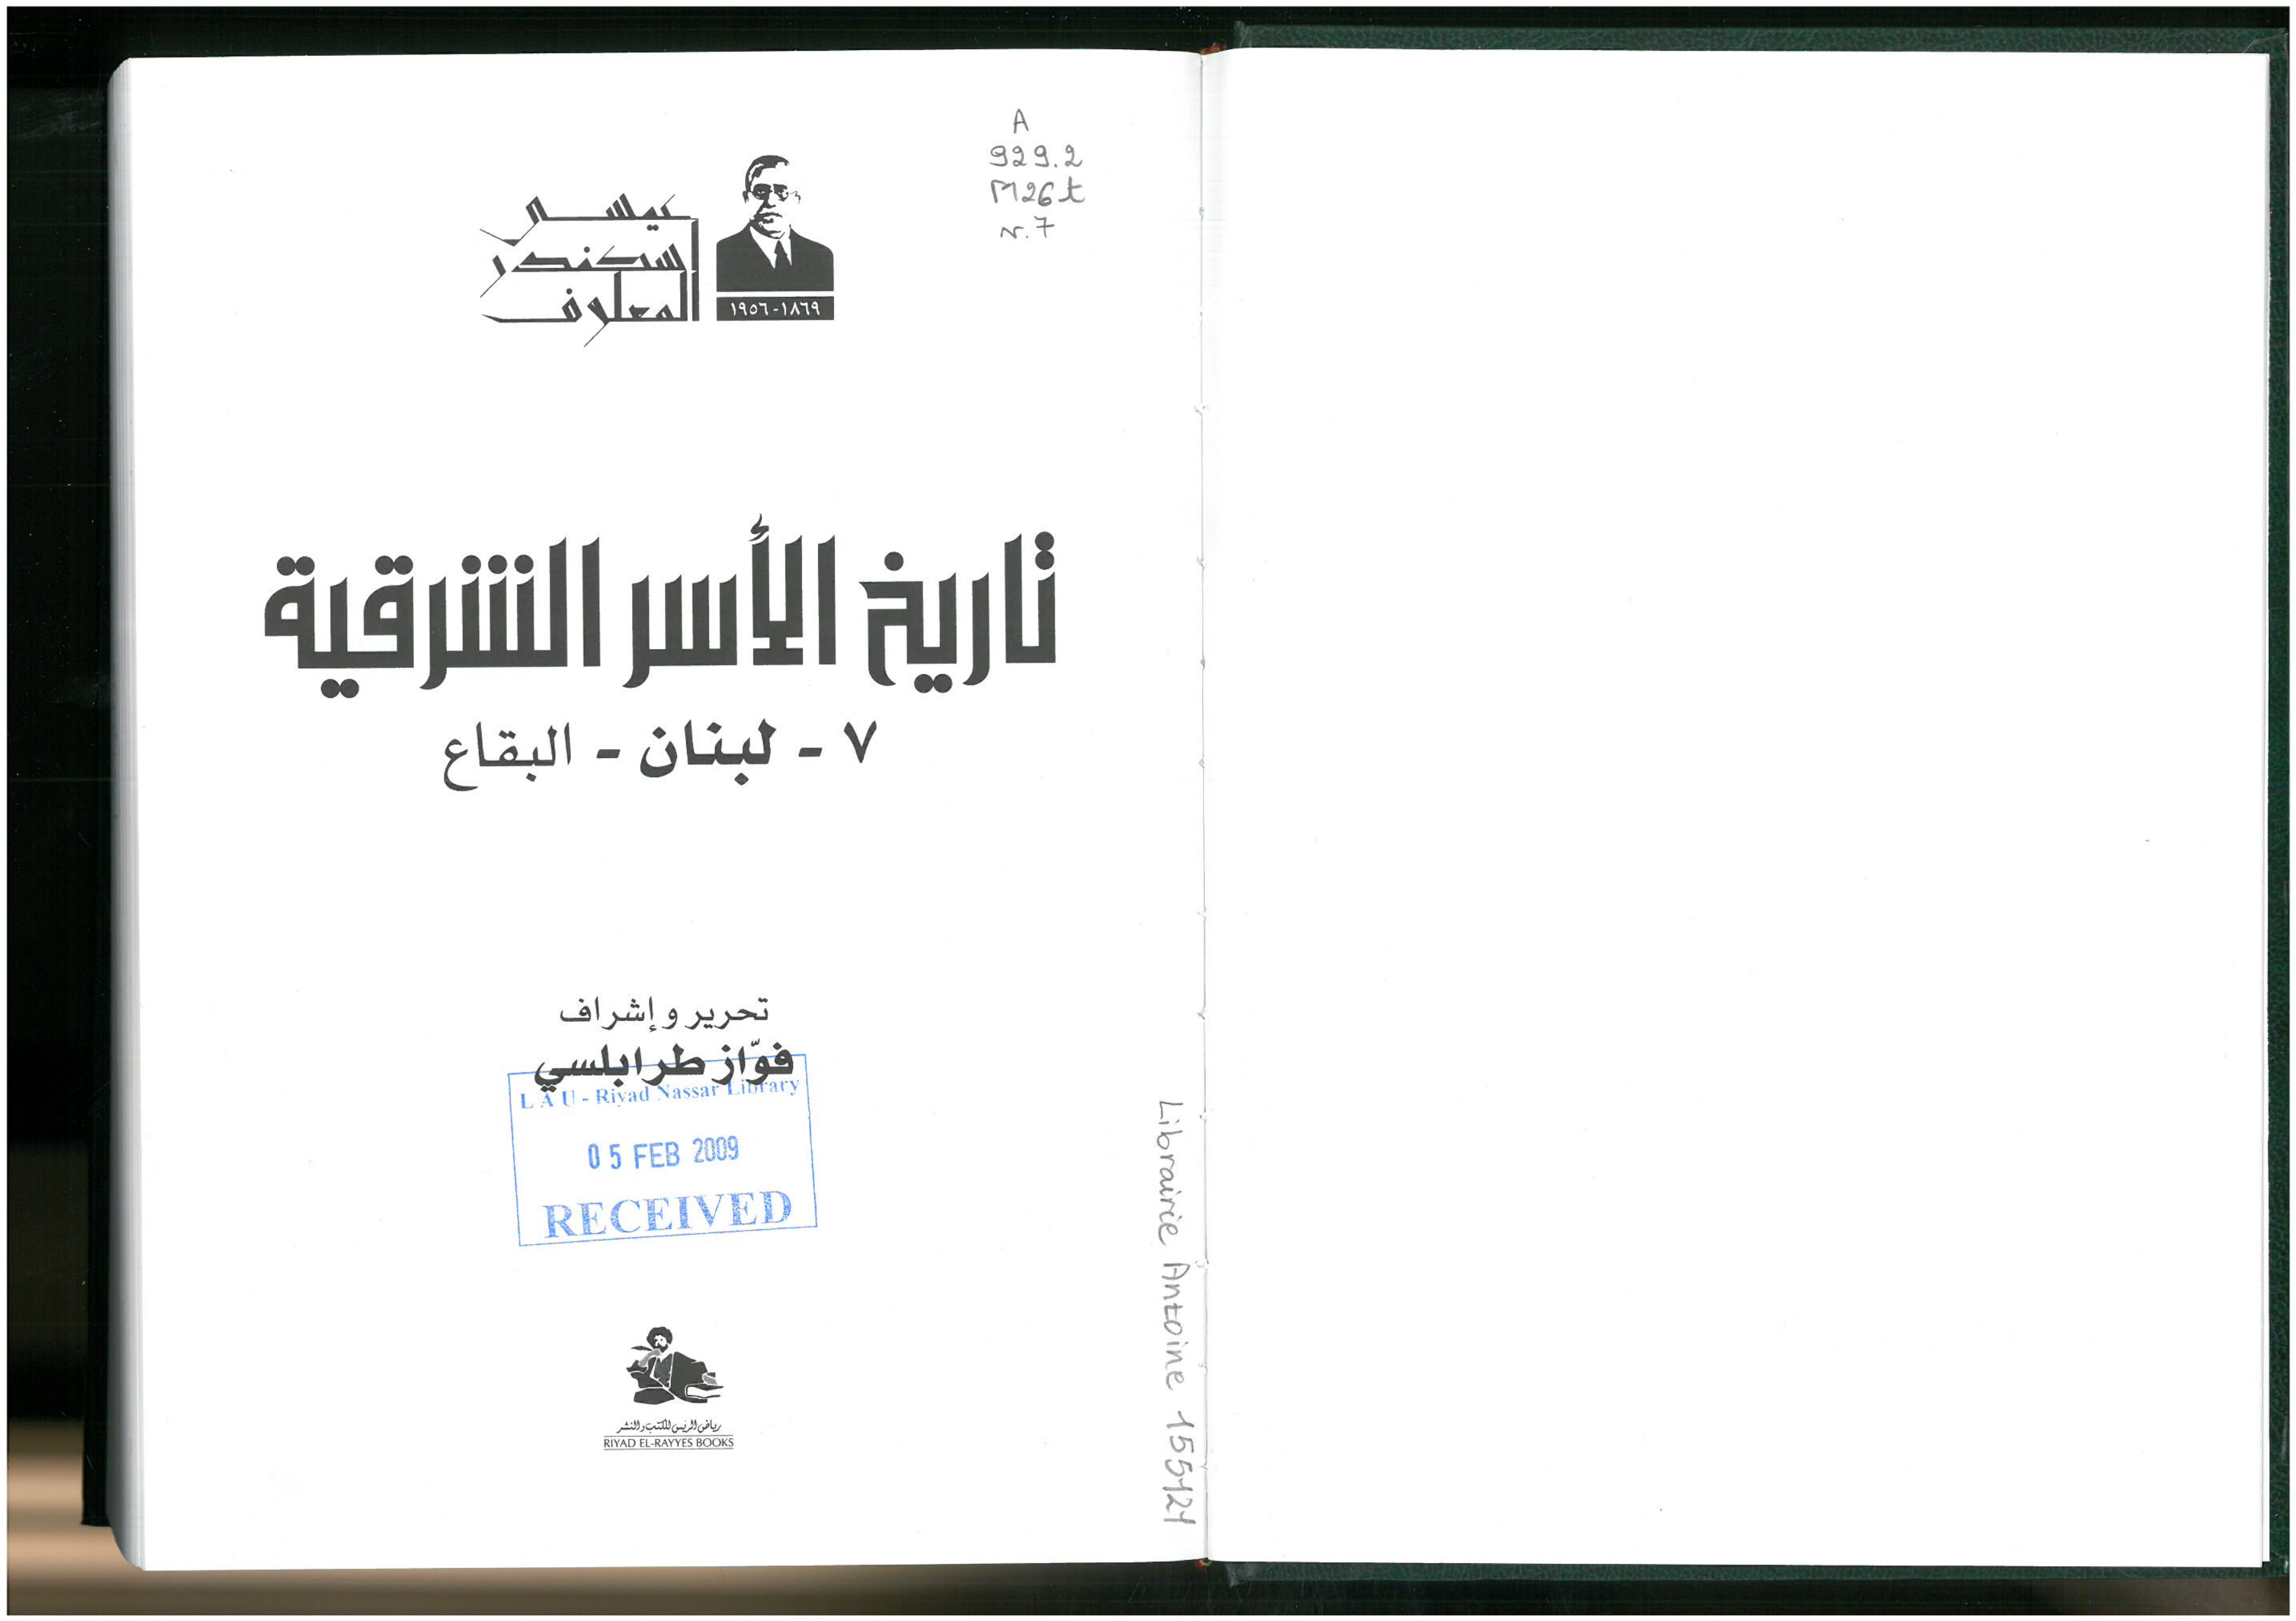 A
929.2
M26t
v.7
عيسى
اسكندر
المعلوف
١٨٦٩-١٩٥٦
تاريخ الأسر الشرقية
٧ - لبنان - البقاع
تحرير وإشراف
فوّاز طرابلسي
LAU - Riyad Nassar Library
05 FEB 2009
RECEIVED
رياض الريس للكتب والنشر
RIYAD EL-RAYYES BOOKS
Librairie Antoine 155124